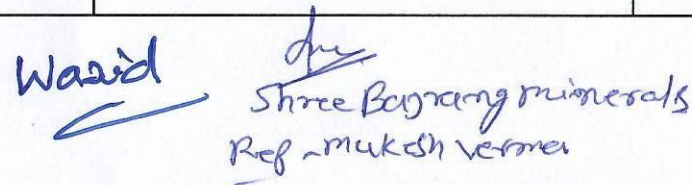 Wazid
Shree Bajrang minerals
Ref - mukesh verma